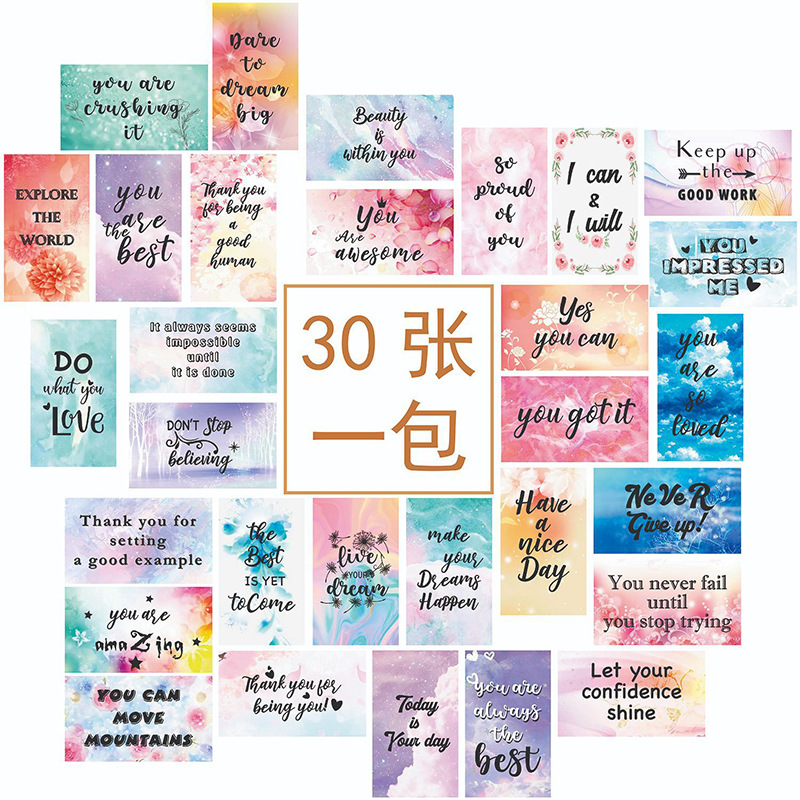 you are
crushing
it
Dare
to
dream
big
Beauty
is
within you
so
proud
of
you
I can
&
I will
Keep up
the
GOOD WORK
EXPLORE
THE
WORLD
you
are
the
best
Thank you
for being
a
good
human
You
Are
awesome
YOU
IMPRESSED
ME
DO
what you
LOVE
It always seems
impossible
until
it is done
30 张
一包
Yes
you can
you
are
so
loved
DON'T Stop
believing
you got it
Thank you for
setting
a good example
the
Best
IS YET
to Come
live
YOUR
dream
make
your
Dreams
Happen
Have
a
nice
Day
NeVeR
Give up!
you are
amaZing
You never fail
until
you stop trying
YOU CAN
MOVE
MOUNTAINS
Thank you for
being you!
Today
is
Your day
you are
always
the
best
Let your
confidence
shine